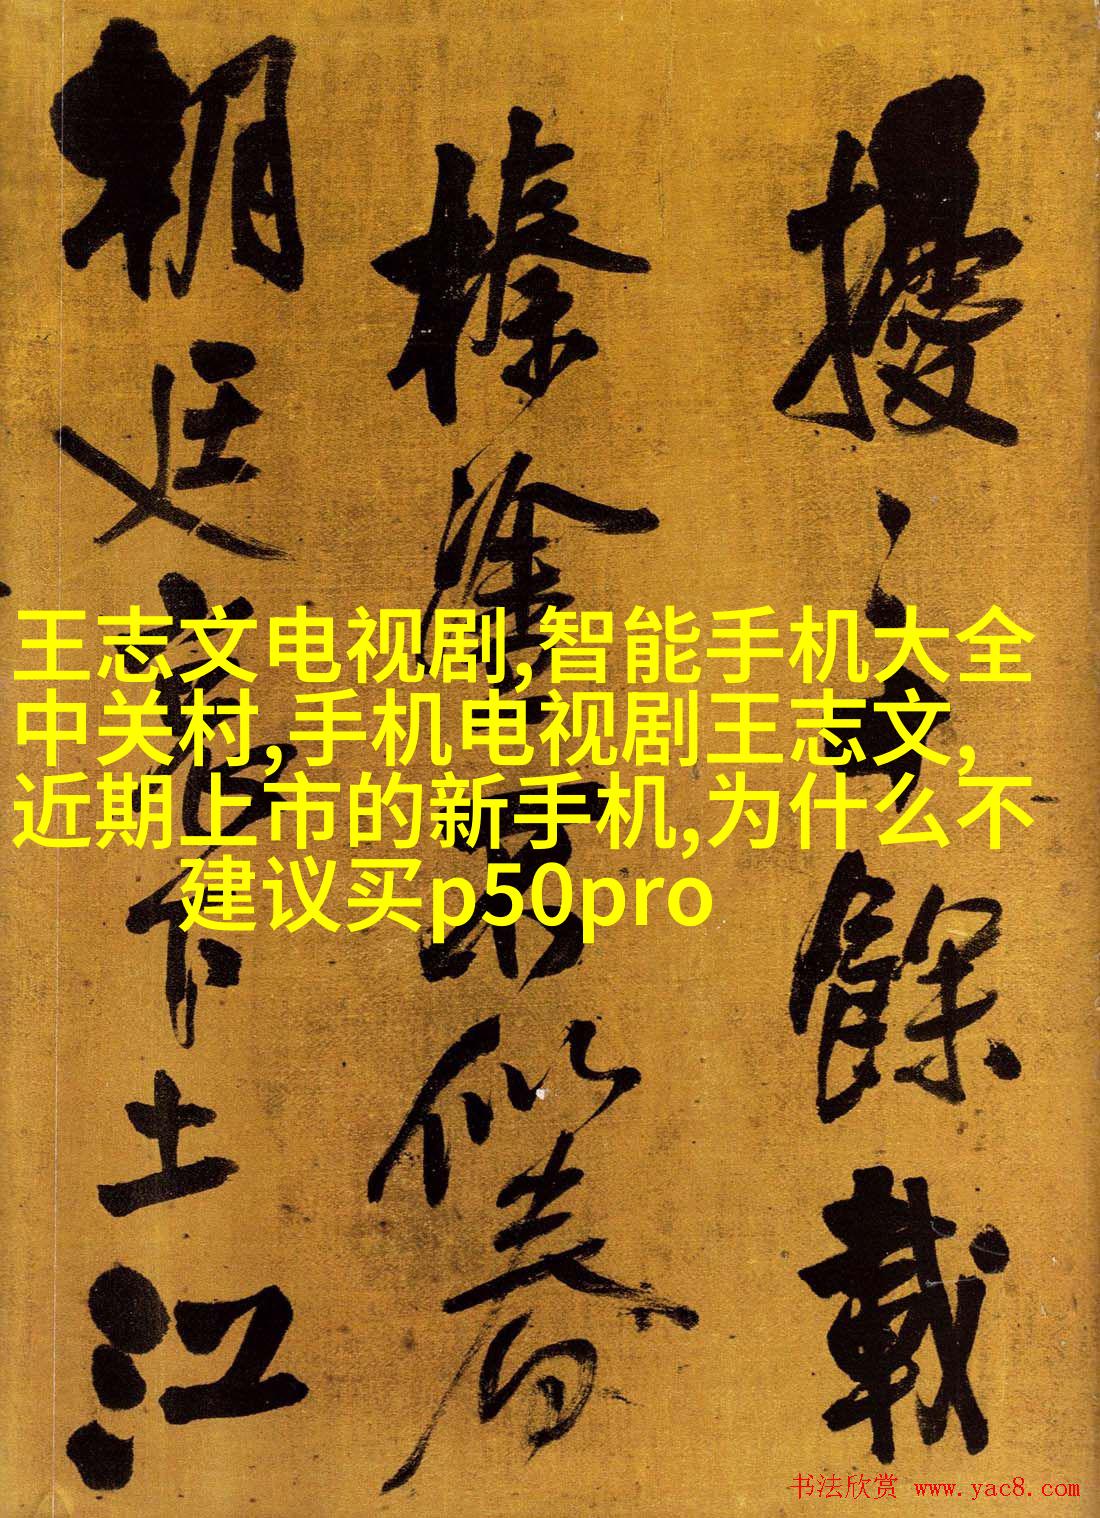 朝廷寰下土江
榛塗
擾之餘載
王志文电视剧,智能手机大全
中关村,手机电视剧王志文,
近期上市的新手机,为什么不
建议买p50pro
书法欣赏 www.yac8.com